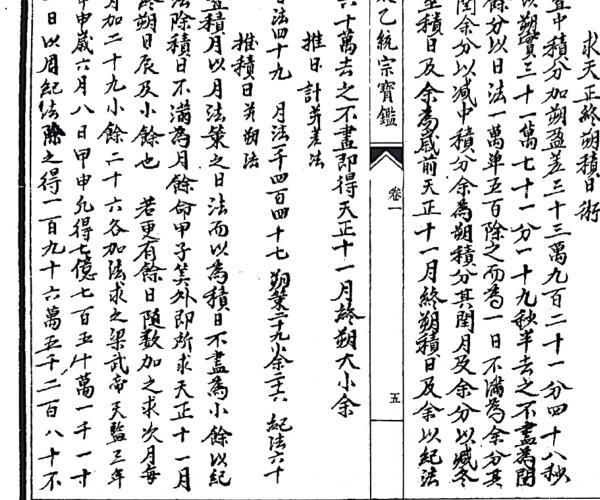 求天正終朔積日術
置中積分加朔盈差三十三萬九百二十一分四十八秒
以朔實三十一萬七十一分一十九秒半去之不盡為閏
餘分以日法一萬單五百除之而為一日不滿為余分其
閏余分以减中積分余為朔積分其閏月及余分以减冬
至積日及余為歲前天正十一月終朔積日及余以紀法
太乙統宗寳鑑
卷一
五
六十萬去之不盡即得天正十一月終朔大小余
推日計并差法
日法四十九 月法一千四百四十七 朔策二十九小余二十六 紀法六十
推積日并朔法
置積月以月法策之日法而以為積日不盡為小餘以紀
法除積日不滿為月餘命甲子筭外即所求天正十一月
終朔日辰及小餘也 若更有餘日隨數加之求次月每
月加二十九小餘二十六各加法求之梁武帝天監三年
甲申歲六月八日甲申九得七億七百五十萬一千一寸
日以周紀法除之得一百九十六萬五千二百八十不